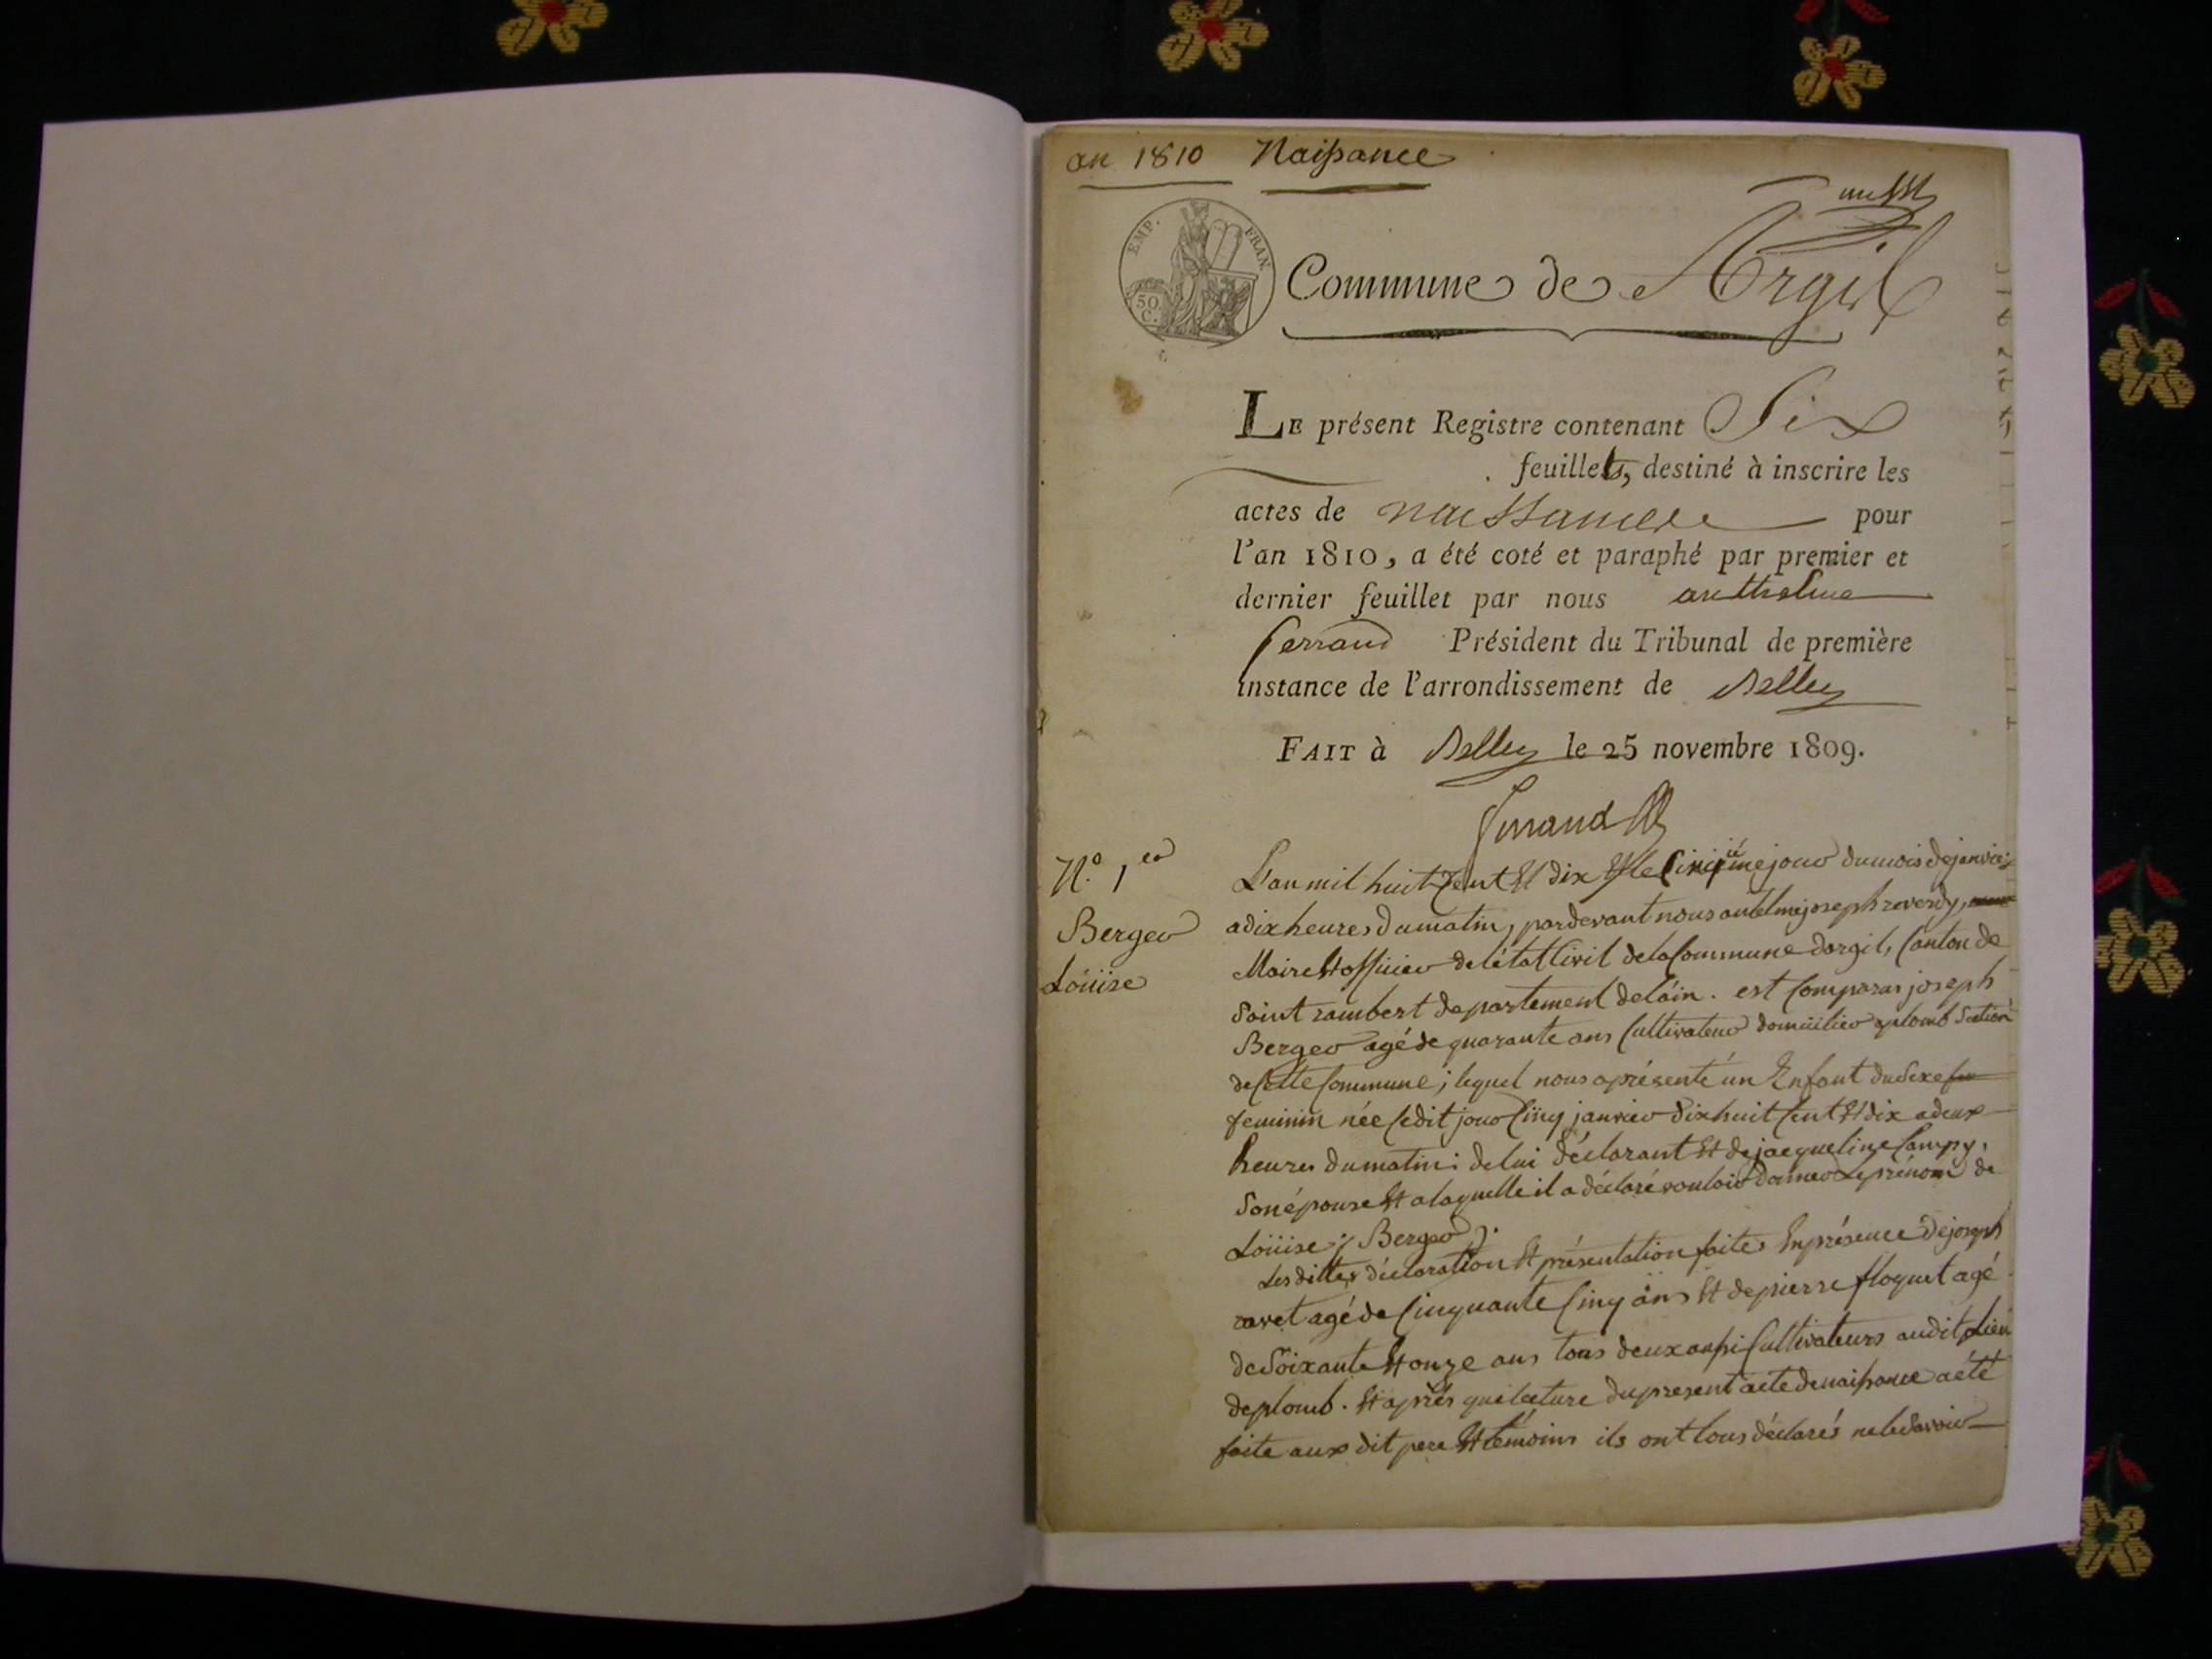 an 1810 Naissance
EMP. FRAN.
50 C.
Commune de Argil
LE présent Registre contenant Six
feuillets, destiné à inscrire les
actes de naissance pour
l'an 1810, a été coté et paraphé par premier et
dernier feuillet par nous anthelme
ferrand Président du Tribunal de première
instance de l'arrondissement de Belley
FAIT à Belley le 25 novembre 1809.
ferrand
N.º 1er
Berger
Loüise
L'an mil huit Cent Et dix Et le Cinqieme jour du mois de janvier
a dix heures du matin, pardevant nous antelme joseph reverdy,
Maire Et officier de létat Civil de la Commune dargil, Canton de
Saint rambert departement de láin. est Comparus joseph
Berger agé de quarante ans Cultivateur domicilier a plomb Section
de Cette Commune; lequel nous a présenté un Enfant du Sexe
feminin née Cedit jour Cinq janvier dix huit Cent Et dix a deux
heures du matin: de lui déclarant Et de jacqueline Campy,
Son épouse Et a laquelle il a déclaré vouloir donner Le prénom de
Loüise Berger.
Les dittes déclaration Et présentation faites En présence de joseph
ravet agé de Cinquante Cinq ans Et de pierre floquet agé
de Soixante Et onze ans tous deux aussi Cultivateurs audit Lieu
de plomb. Et après que lecture du present acte de naissance a été
faite aux dit pere Et témoins ils ont tous déclarés ne le Savoir